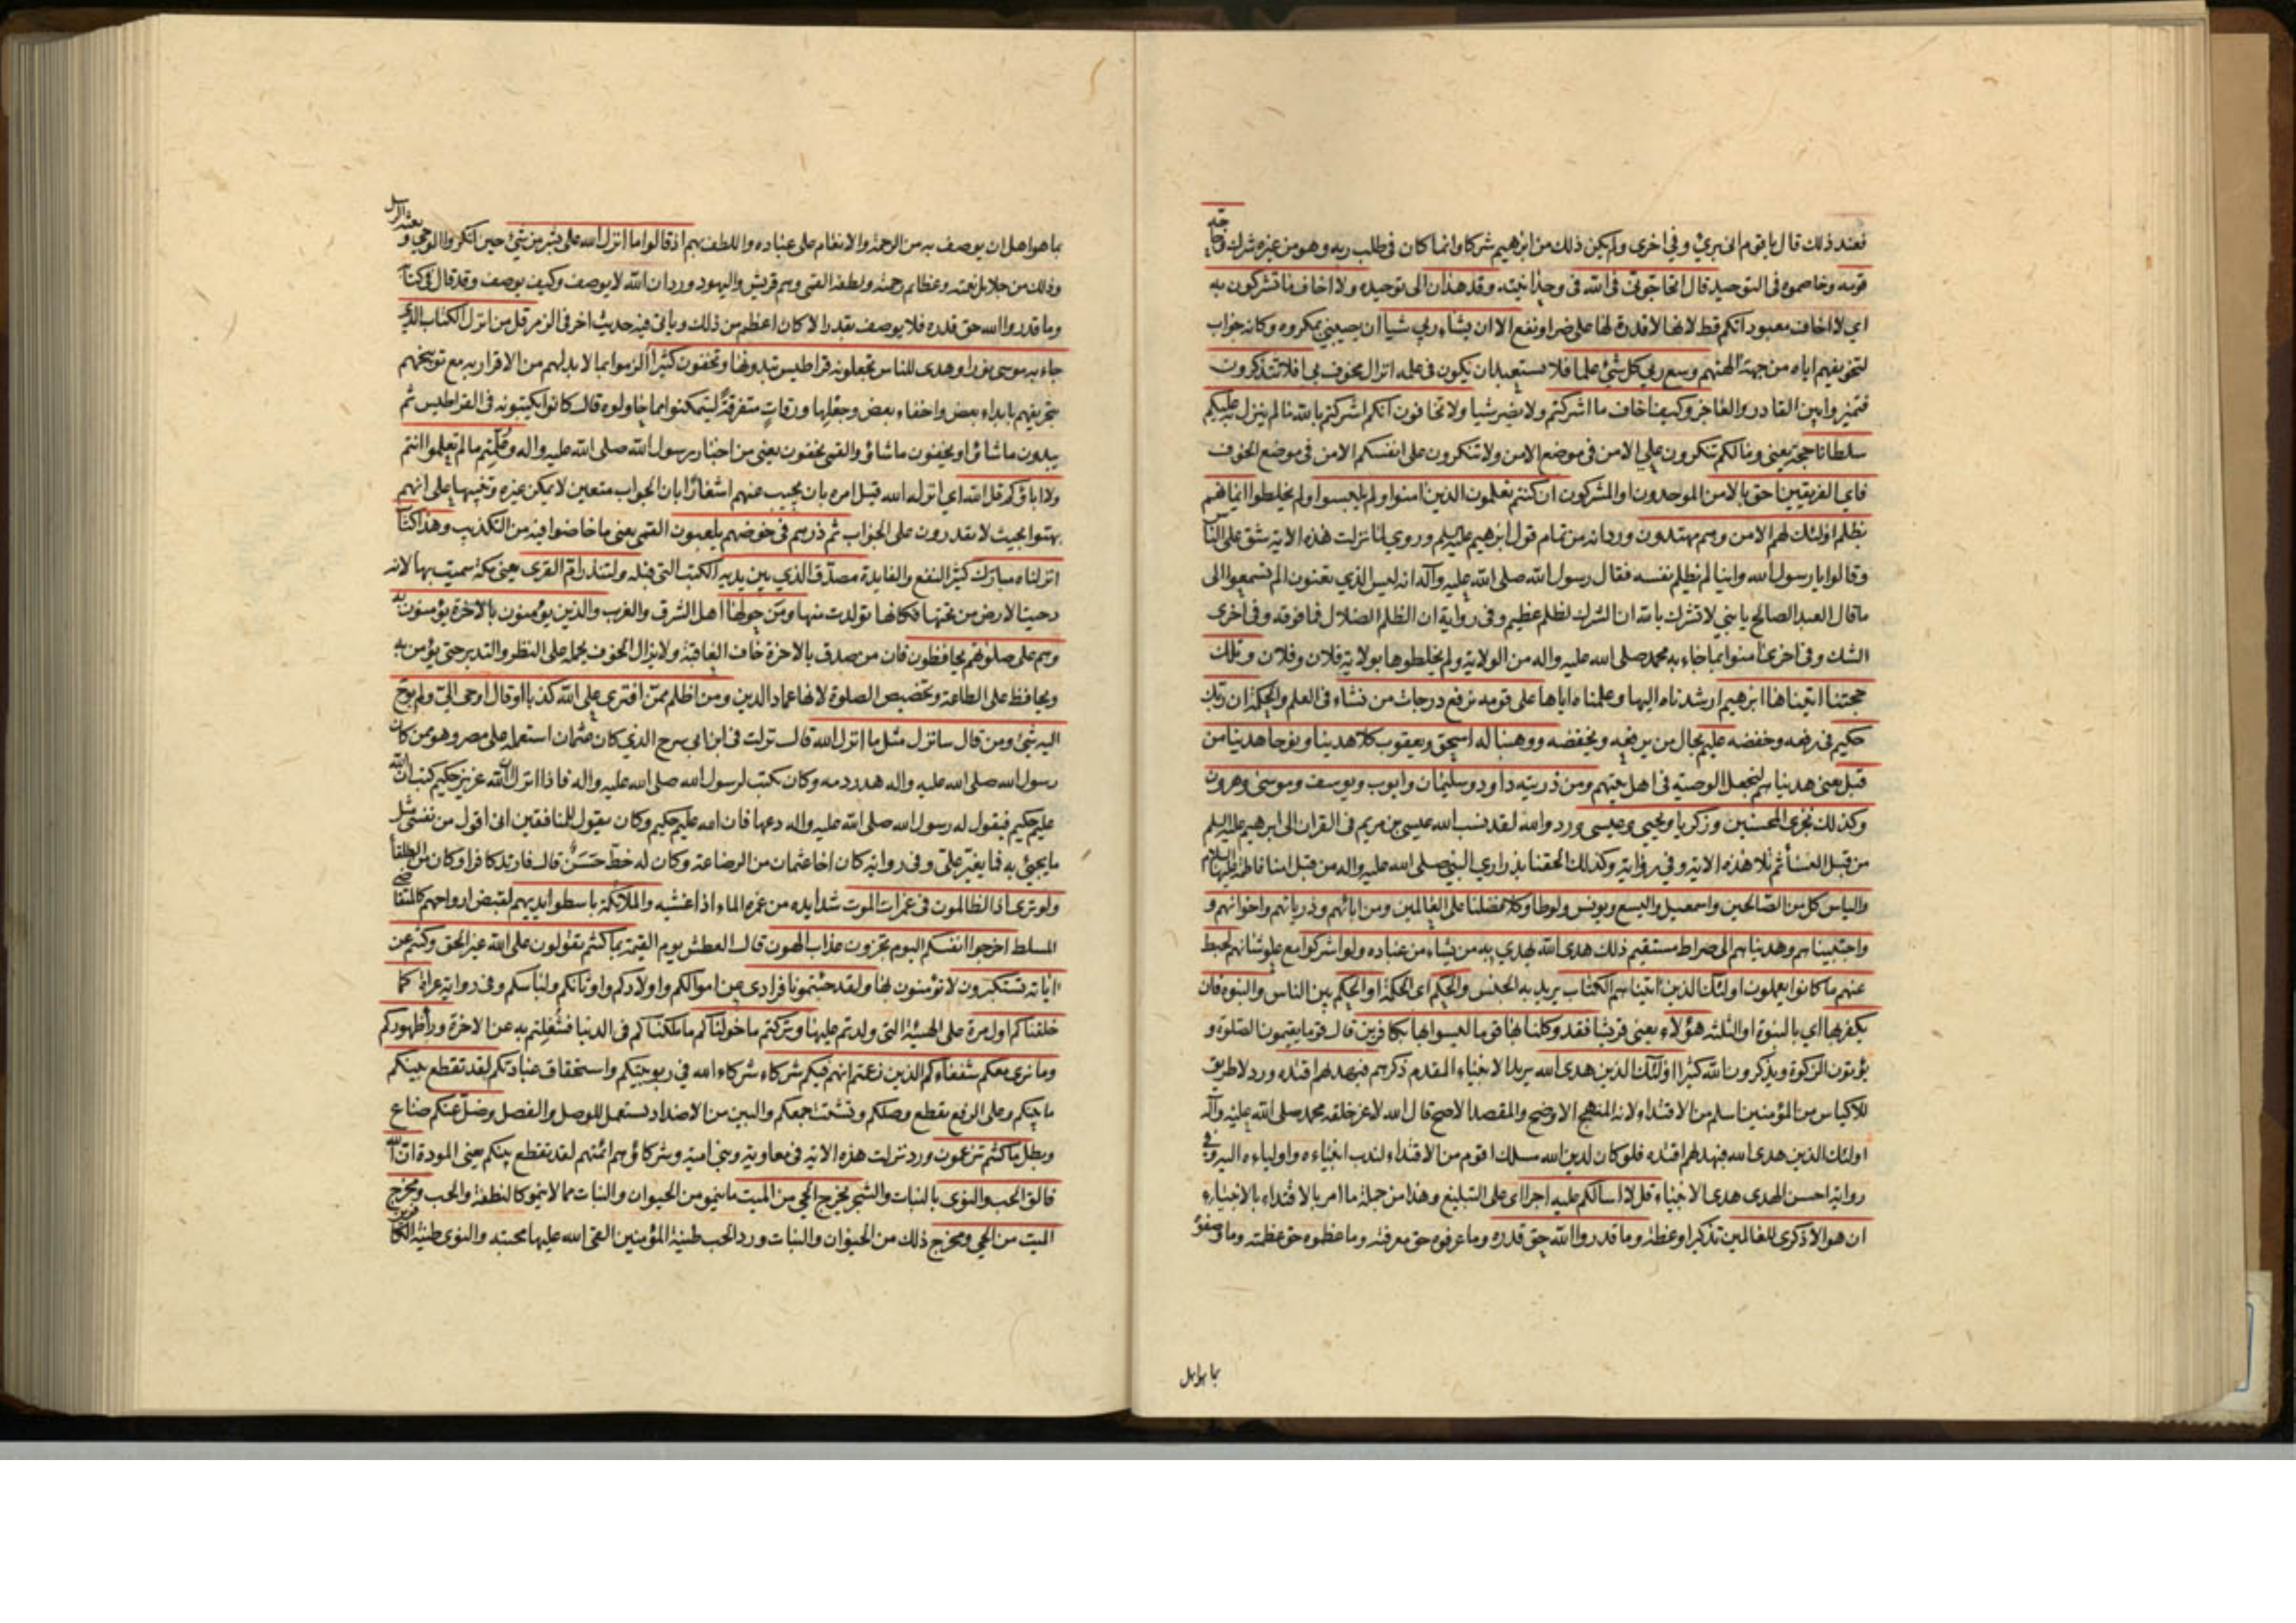 فعند ذلك قال يا قوم اني بريء وفي اخرى ولم يكن ذلك من ابرهيم شركا وانما كان في طلب ربه وهو من غيره شرك وحاجه
قومه وخاصموه في التوحيد قال اتحاجوني في الله في وحدانيته وقد هدان الى توحيده ولا اخاف ما تشركون به
اي لا اخاف معبوداتكم قط لانها لا قدرة لها على ضر او نفع الا ان يشاء ربي شيئا ان يصيبني بمكروه وكانه جواب
لتخويفهم اياه من جهة الهتهم وسع ربي كل شيء علما فلا يستبعد ان يكون في علمه انزال مخوف بي افلا تتذكرون
فتميزوا بين القادر والعاجز وكيف اخاف ما اشركتم ولا يضر شيئا ولا تخافون انكم اشركتم بالله ما لم ينزل به عليكم
سلطانا حجة يعني وما لكم تنكرون علي الامن في موضع الامن ولا تنكرون على انفسكم الامن في موضع الخوف
فاي الفريقين احق بالامن الموحدون او المشركون ان كنتم تعلمون الذين امنوا ولم يلبسوا ولم يخلطوا ايمانهم
بظلم اولئك لهم الامن وهم مهتدون ورد انه من تمام قول ابرهيم عليه السلم وروي لما نزلت هذه الاية شق على الناس
وقالوا يا رسول الله واينا لم يظلم نفسه فقال رسول الله صلى الله عليه وآله انه ليس الذي تعنون الم تسمعوا الى
ما قال العبد الصالح يا بني لا تشرك بالله ان الشرك لظلم عظيم وفي رواية ان الظلم الضلال فما فوقه وفي اخرى
الشك وفي اخرى امنوا بما جاء به محمد صلى الله عليه واله من الولاية ولم يخلطوها بولاية فلان وفلان وتلك
حجتنا اتيناها ابرهيم ارشدناه اليها وعلمناه اياها على قومه نرفع درجات من نشاء في العلم والحكمة ان ربك
حكيم في رفعه وخفضه عليم بحال من يرفعه ويخفضه ووهبنا له اسحق ويعقوب كلا هدينا ونوحا هدينا من
قبل يعني هديناهم لنجعل الوصية في اهل بيتهم ومن ذريته داود وسليمان وايوب ويوسف وموسى وهرون
وكذلك نجزي المحسنين وزكريا ويحيى وعيسى ورد والله لقد نسب الله عيسى بن مريم في القران الى ابرهيم عليه السلم
من قبل النسأ ثم تلا هذه الاية وفي رواية وكذلك الحقنا بذراري النبي صلى الله عليه واله من قبل امنا فاطمة عليها السلام
والياس كل من الصالحين واسمعيل واليسع ويونس ولوطا وكلا فضلنا على العالمين ومن ابائهم وذرياتهم واخوانهم و
واجتبيناهم وهديناهم الى صراط مستقيم ذلك هدى الله يهدي به من يشاء من عباده ولو اشركوا مع علو شانهم لحبط
عنهم ما كانوا يعملون اولئك الذين اتيناهم الكتاب يريد به الجنس والحكم اى الحكمة او الحكم بين الناس والنبوة فان
يكفر بها اي بالنبوة او الثلثه هؤلاء يعني قريشا فقد وكلنا بها قوما ليسوا بها بكافرين قال قوما يقيمون الصلوة و
يؤتون الزكوة ويذكرون الله كثيرا اولئك الذين هدى الله يريد الانبياء المقدم ذكرهم فبهداهم اقتده ورد لا طريق
للاكياس من المؤمنين اسلم من الاقتداء لانه المنهج الاوضح والمقصد الاصح قال الله لاعز خلقه محمد صلى الله عليه وآله
اولئك الذين هدى الله فبهداهم اقتده فلو كان لدين الله مسلك اقوم من الاقتداء لندب انبياءه واولياءه اليه وفي
رواية احسن الهدى هدى الانبياء قل لا اسالكم عليه اجرا اى على التبليغ وهذا من جملة ما امر بالاقتداء بالانبياء فيه
ان هو الا ذكرى للعالمين تذكيرا وعظة وما قدروا الله حق قدره وما عرفوه حق معرفته وما عظموه حق عظمته وما وصفوه
بما هو اهل
بما هو اهل ان يوصف به من الرحمة والانعام على عباده واللطف بهم اذ قالوا ما انزل الله على بشر من شيء حين انكروا الوحي و بعثة الرسل
وذلك من جلايل نعمته وعظائم رحمته ولطفه القمي وهم قريش واليهود ورد ان الله لا يوصف وكيف يوصف وقد قال في كتابه
وما قدروا الله حق قدره فلا يوصف بقدر الا كان اعظم من ذلك وياتي فيه حديث اخر في الزمر قل من انزل الكتاب الذي
جاء به موسى نورا وهدى للناس تجعلونه قراطيس تبدونها وتخفون كثيرا الزموا بما لا بد لهم من الاقرار به مع توبيخهم
بتحريفهم بابداء بعض واخفاء بعض وجعلها ورقات متفرقة ليتمكنوا مما حاولوه قال كانوا يكتبونه في القراطيس ثم
يبدون ما شاؤا ويخفون ما شاؤا والقمي يخفون يعني من اخبار رسول الله صلى الله عليه واله وعلمتم ما لم تعلموا انتم
ولا اباؤكم قل الله اي انزله الله قبل امره بان يجيب عنهم اشعارا بان الجواب متعين لا يمكن غيره وتنبيها على انهم
بهتوا بحيث لا يقدرون على الجواب ثم ذرهم في خوضهم يلعبون القمي يعني ما خاضوا فيه من التكذيب وهذا كتاب
انزلناه مبارك كثير النفع والفايدة مصدق الذي بين يديه الكتب التي قبله ولتنذر ام القرى يعني مكة سميت بها لانه
دحيت الارض من تحتها فكانها تولدت منها ومن حولها اهل الشرق والغرب والذين يؤمنون بالاخرة يؤمنون به
وهم على صلوتهم يحافظون فان من صدق بالاخرة خاف العاقبة ولا يزال الخوف يحمله على النظر والتدبر حتى يؤمن به
ويحافظ على الطاعة وتخصيص الصلوة لانها عماد الدين ومن اظلم ممن افترى على الله كذبا او قال اوحى الي ولم يوح
اليه شيء ومن قال سانزل مثل ما انزل الله قال نزلت في ابن ابي سرح الذي كان عثمان استعمله على مصر وهو ممن كان
رسول الله صلى الله عليه واله هدر دمه وكان يكتب لرسول الله صلى الله عليه واله فاذا انزل الله ان الله عزيز حكيم كتب ان الله
عليم حكيم فيقول له رسول الله صلى الله عليه واله دعها فان الله عليم حكيم وكان يقول للمنافقين اني اقول من نفسي مثل
ما يجيئ به فما يغير علي وفي رواية كان اخا عثمان من الرضاعة وكان له خط حسن قال فارتد كافرا وكان من الطلقأ
ولو ترى اذ الظالمون في غمرات الموت شدايده من غمره الماء اذا غشيه والملائكة باسطوا ايديهم لقبض ارواحهم كالمتقاضي
المسلط اخرجوا انفسكم اليوم تجزون عذاب الهون قال العطش يوم القيمة بما كنتم تقولون على الله غير الحق وكنتم عن
اياته تستكبرون لا تؤمنون بها ولقد جئتمونا فرادى عن اموالكم واولادكم واوثانكم ولباسكم وفي رواية عراة كما
خلقناكم اول مرة على الهيئة التي ولدتم عليها وتركتم ما خولناكم ما ملكناكم في الدنيا فشغلتم به عن الاخرة وراء ظهوركم
وما نرى معكم شفعاءكم الذين زعمتم انهم فيكم شركاء شركاء الله في ربوبيتكم واستحقاق عبادتكم لقد تقطع بينكم
ما بينكم وعلى الرفع تقطع وصلكم وتشتت جمعكم والبين من الاضداد تستعمل للوصل والفصل وضل عنكم ضاع
وبطل ما كنتم تزعمون ورد نزلت هذه الاية في معاوية وبني امية وشركاؤهم ائمتهم لقد تقطع بينكم يعني المودة ان الله
فالق الحب والنوى بالنبات والشجر يخرج الحي من الميت ما ينمو من الحيوان والنبات مما لا ينمو كالنطفة والحب ومخرج
الميت من الحي ومخرج ذلك من الحيوان والنبات ورد الحب طينة المؤمنين القى الله عليها محبته والنوى طينة الكافرين